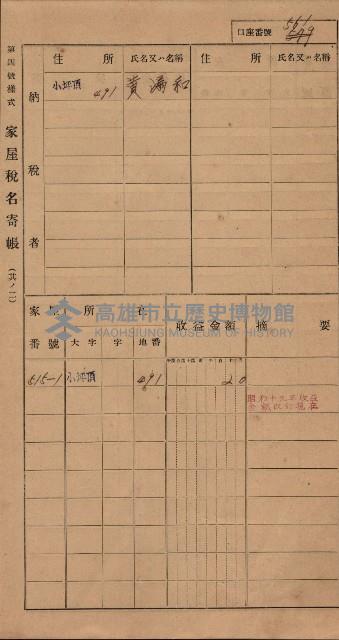 第四號樣式
家屋稅名寄帳
(其ノ一)
口座番號
561
住所
氏名又ハ名稱
住所
氏名又ハ名稱
納稅者
小坪頂
491
黃滿和
高雄市立歷史博物館
KAOHSIUNG MUSEUM OF HISTORY
家屋番號
所在
大字
字
地番
收益金額
摘要
615-1
小坪頂
491
20
昭和十九年收益
金額改訂現在